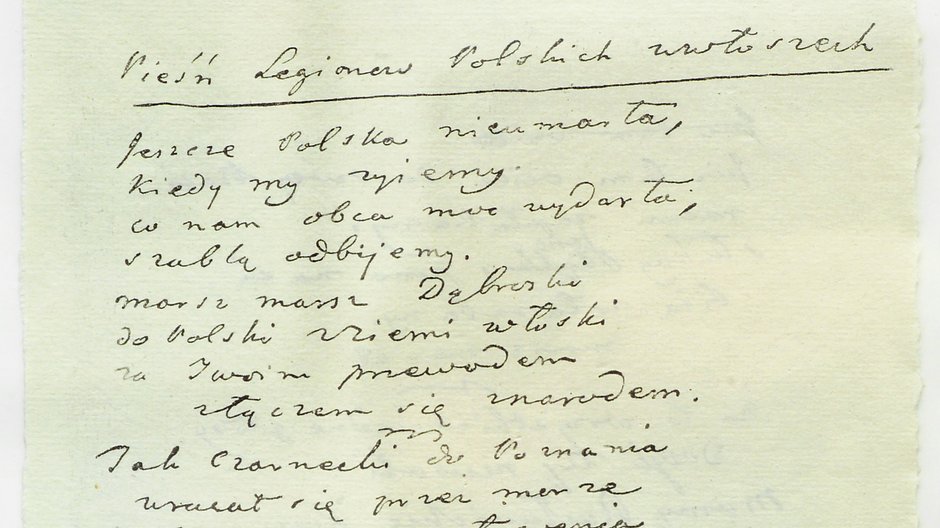 Pieśń Legionow Polskich wwłoszech
Jeszcze Polska nieumarła,
kiedy my żyiemy.
co nam obca moc wydarła,
szablą odbijemy.
marsz marsz Dąbroski
do Polski zziemi włoski
za Twoim przewodem
złączem się znarodem.
Jak Czarnecki do Poznania
wracał się przez morze